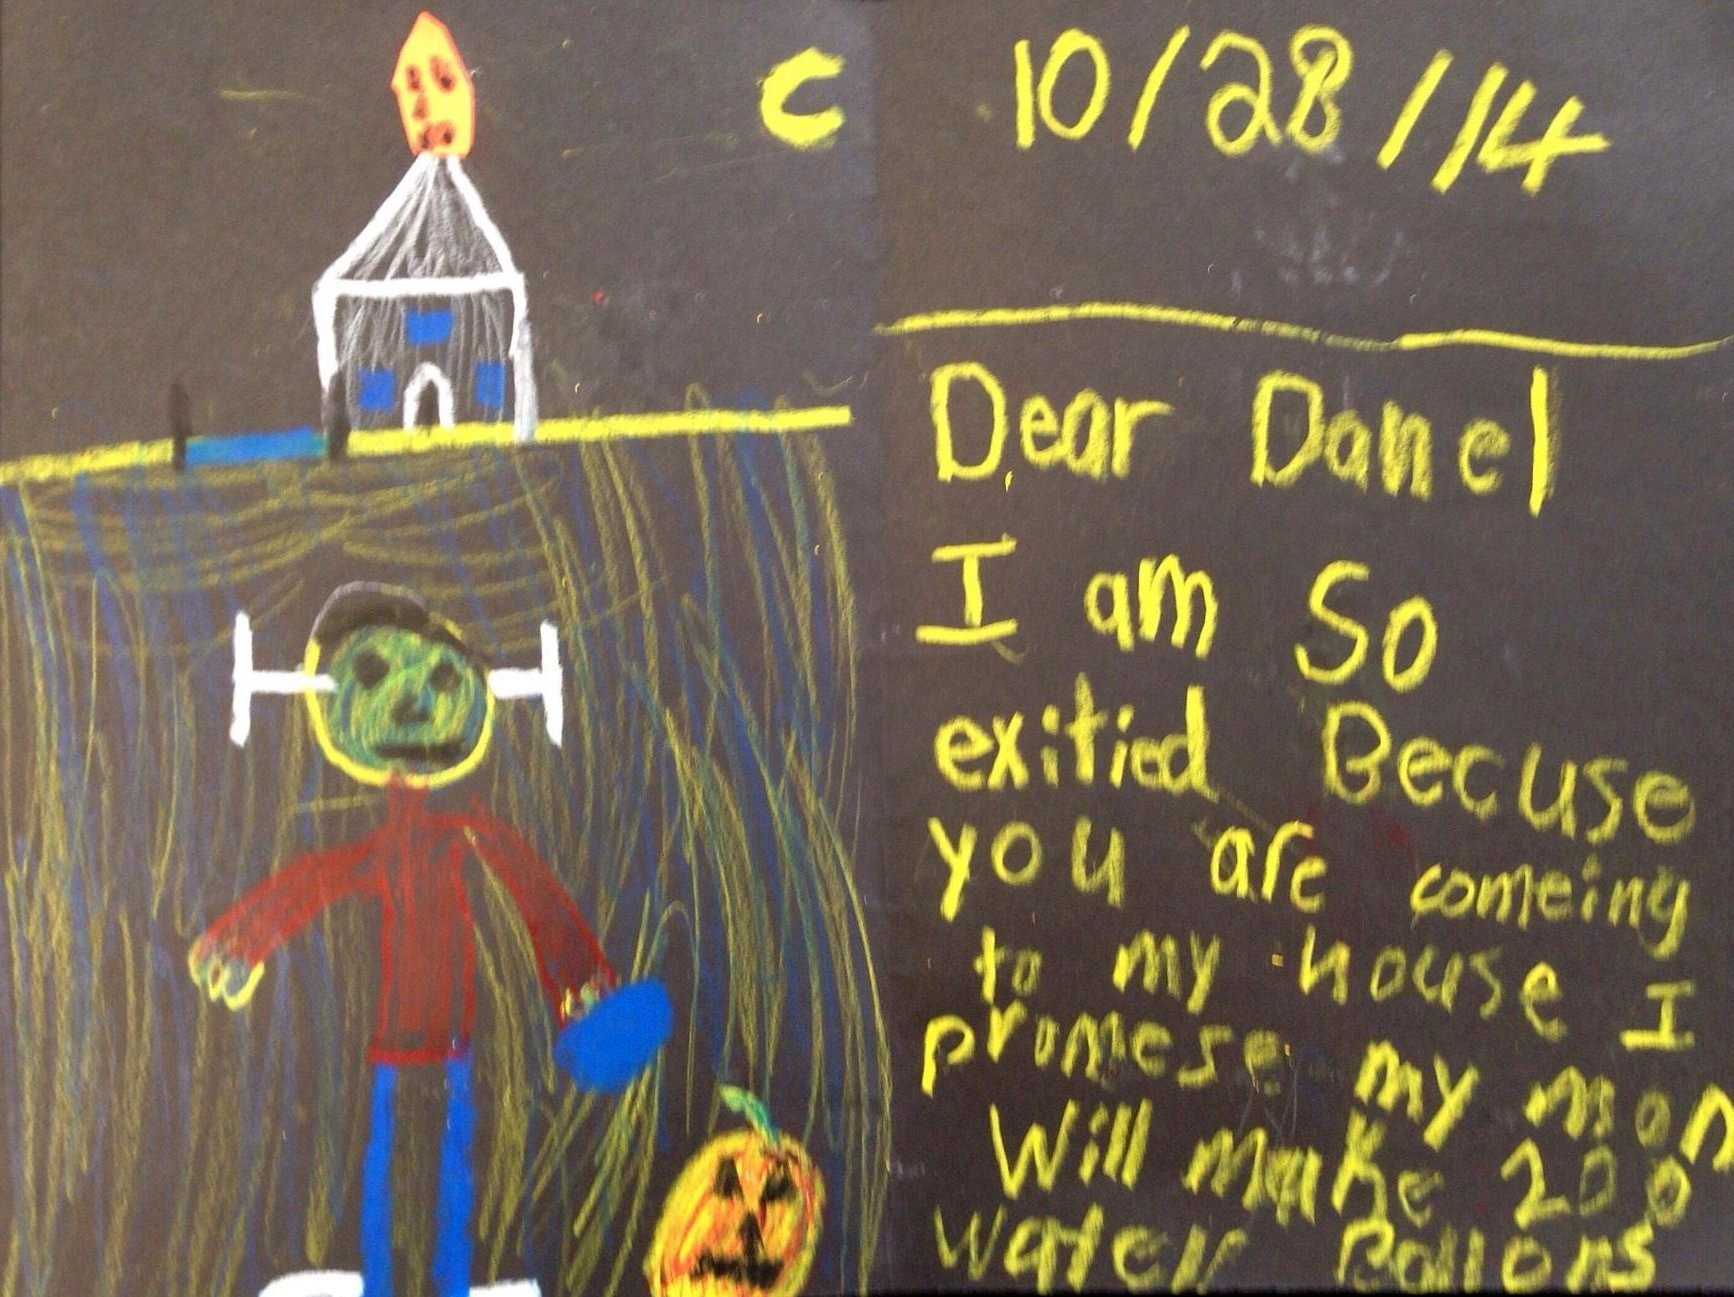 C
10/28/14
Dear Danel
I am So
exitied Becuse
you are comeing
to my house I
promese my mom
Will make 200
water Ballons